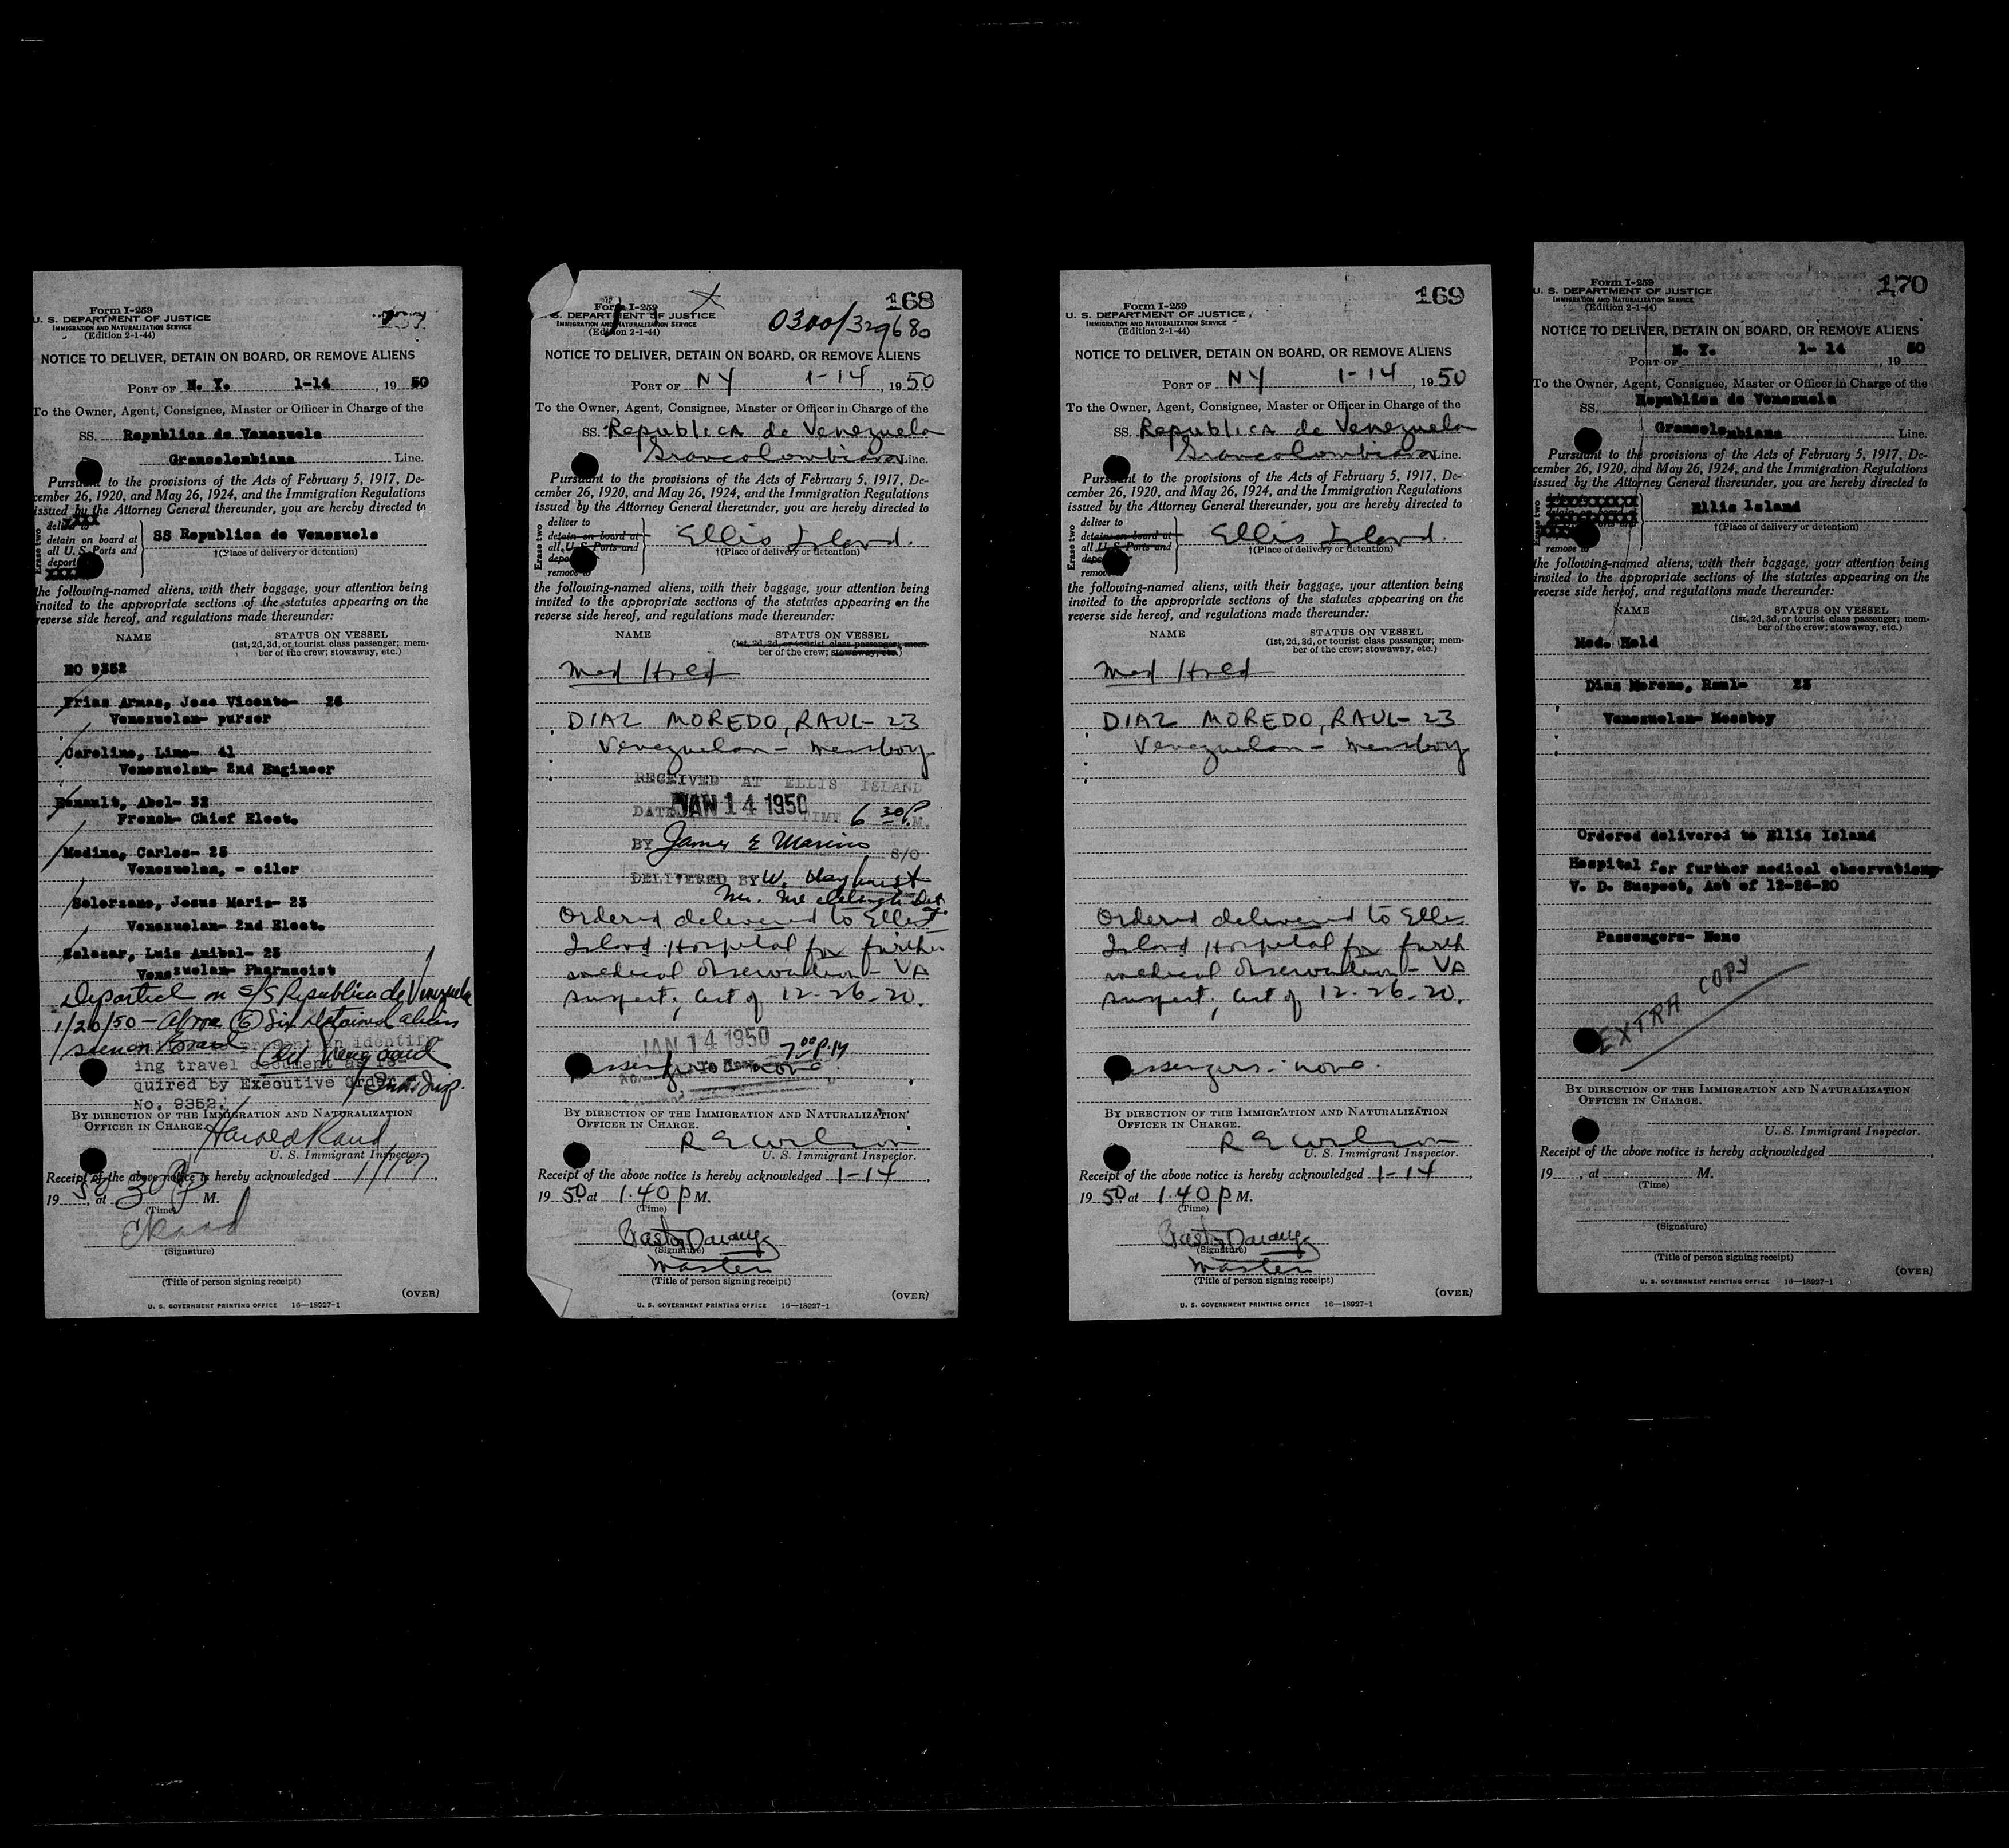 Form I-259
U. S. DEPARTMENT OF JUSTICE
IMMIGRATION AND NATURALIZATION SERVICE
(Edition 2-1-44)
NOTICE TO DELIVER, DETAIN ON BOARD, OR REMOVE ALIENS
PORT OF N. Y. 1-14, 19 50
To the Owner, Agent, Consignee, Master or Officer in Charge of the
SS. Republica de Venezuela
Grancolombiana Line.
Pursuant to the provisions of the Acts of February 5, 1917, De-
cember 26, 1920, and May 26, 1924, and the Immigration Regulations
issued by the Attorney General thereunder, you are hereby directed to
Erase two
deliver to
detain on board at
all U. S. Ports and
deport
SS Republica de Venezuela
†(Place of delivery or detention)
the following-named aliens, with their baggage, your attention being
invited to the appropriate sections of the statutes appearing on the
reverse side hereof, and regulations made thereunder:
NAME STATUS ON VESSEL
(1st, 2d, 3d, or tourist class passenger; mem-
ber of the crew; stowaway, etc.)
EO 9352
Frias Armas, Jose Vicente- 26
Venezuelan- purser
Caroline, Lima- 41
Venezuelan- 2nd Engineer
Renault, Abel- 32
French- Chief Elect.
Medina, Carlos- 25
Venezuelan, - oiler
Solorzano, Jesus Maria- 23
Venezuelan- 2nd Elect.
Salazar, Luis Anibal- 25
Venezuelan- Pharmacist
Departed on S/S Republica de Venezuela
1/20/50 - above (6) Six detained aliens
seen on Board.
present an identify-
ing travel document as re-
quired by Executive Order
No. 9352.
BY DIRECTION OF THE IMMIGRATION AND NATURALIZATION
OFFICER IN CHARGE.
Harold Rand
U. S. Immigrant Inspector.
Receipt of the above notice is hereby acknowledged
19 50, at M.
(Time)
(Signature)
(Title of person signing receipt)
(OVER)
U. S. GOVERNMENT PRINTING OFFICE 16—18927-1
168
Form I-259
S. DEPARTMENT OF JUSTICE
IMMIGRATION AND NATURALIZATION SERVICE
(Edition 2-1-44)
0300/329680
NOTICE TO DELIVER, DETAIN ON BOARD, OR REMOVE ALIENS
PORT OF NY 1-14, 19 50
To the Owner, Agent, Consignee, Master or Officer in Charge of the
SS. Republica de Venezuela
Grancolombiana Line.
Pursuant to the provisions of the Acts of February 5, 1917, De-
cember 26, 1920, and May 26, 1924, and the Immigration Regulations
issued by the Attorney General thereunder, you are hereby directed to
Erase two
deliver to
detain on board at
all U. S. Ports and
depo
remove to
Ellis Island.
†(Place of delivery or detention)
the following-named aliens, with their baggage, your attention being
invited to the appropriate sections of the statutes appearing on the
reverse side hereof, and regulations made thereunder:
NAME STATUS ON VESSEL
(1st, 2d, 3d, or tourist class passenger; mem-
ber of the crew; stowaway, etc.)
Med Held
DIAZ MOREDO, RAUL- 23
Venezuelan - messboy
RECEIVED AT ELLIS ISLAND
DATE JAN 14 1950 TIME 6 30 P.M.
BY James E Marino S/O
DELIVERED BY W. Hayhurst
Ordered delivered to Ellis
Island Hospital for further
medical observation - VD
suspect, Act of 12-26-20.
JAN 14 1950 7 00 P.M
Passengers - none.
BY DIRECTION OF THE IMMIGRATION AND NATURALIZATION
OFFICER IN CHARGE.
R E Wilson
U. S. Immigrant Inspector.
Receipt of the above notice is hereby acknowledged 1-14,
19 50 at 1.40 P M.
(Time)
(Signature)
Master
(Title of person signing receipt)
(OVER)
U. S. GOVERNMENT PRINTING OFFICE 16—18927-1
169
Form I-259
U. S. DEPARTMENT OF JUSTICE
IMMIGRATION AND NATURALIZATION SERVICE
(Edition 2-1-44)
NOTICE TO DELIVER, DETAIN ON BOARD, OR REMOVE ALIENS
PORT OF NY 1-14, 19 50
To the Owner, Agent, Consignee, Master or Officer in Charge of the
SS. Republica de Venezuela
Grancolombiana Line.
Pursuant to the provisions of the Acts of February 5, 1917, De-
cember 26, 1920, and May 26, 1924, and the Immigration Regulations
issued by the Attorney General thereunder, you are hereby directed to
Erase two
deliver to
detain on board at
all U. S. Ports and
depo
remove to
Ellis Island.
†(Place of delivery or detention)
the following-named aliens, with their baggage, your attention being
invited to the appropriate sections of the statutes appearing on the
reverse side hereof, and regulations made thereunder:
NAME STATUS ON VESSEL
(1st, 2d, 3d, or tourist class passenger; mem-
ber of the crew; stowaway, etc.)
Med Held
DIAZ MOREDO, RAUL- 23
Venezuelan - messboy
Ordered delivered to Ellis
Island Hospital for furth
medical observation - VD
suspect, Act of 12-26-20.
Passengers - none.
BY DIRECTION OF THE IMMIGRATION AND NATURALIZATION
OFFICER IN CHARGE.
R E Wilson
U. S. Immigrant Inspector.
Receipt of the above notice is hereby acknowledged 1-14,
19 50 at 1.40 P M.
(Time)
(Signature)
Master
(Title of person signing receipt)
(OVER)
U. S. GOVERNMENT PRINTING OFFICE 16—18927-1
170
Form I-259
U. S. DEPARTMENT OF JUSTICE
IMMIGRATION AND NATURALIZATION SERVICE
(Edition 2-1-44)
NOTICE TO DELIVER, DETAIN ON BOARD, OR REMOVE ALIENS
N. Y. 1- 14 50
PORT OF , 19
To the Owner, Agent, Consignee, Master or Officer in Charge of the
SS. Republica de Venezuela
Grancolombiana Line.
Pursuant to the provisions of the Acts of February 5, 1917, De-
cember 26, 1920, and May 26, 1924, and the Immigration Regulations
issued by the Attorney General thereunder, you are hereby directed to
Erase two
remove to
Ellis Island
†(Place of delivery or detention)
the following-named aliens, with their baggage, your attention being
invited to the appropriate sections of the statutes appearing on the
reverse side hereof, and regulations made thereunder:
NAME STATUS ON VESSEL
(1st, 2d, 3d, or tourist class passenger; mem-
ber of the crew; stowaway, etc.)
Med. Held
Diaz Moreno, Raul- 23
Venezuelan- Messboy
Ordered delivered to Ellis Island
Hospital for further medical observation-
V. D. Suspect, Act of 12-26-20
Passengers- None
EXTRA COPY
BY DIRECTION OF THE IMMIGRATION AND NATURALIZATION
OFFICER IN CHARGE.
U. S. Immigrant Inspector.
Receipt of the above notice is hereby acknowledged
19 , at M.
(Time)
(Signature)
(Title of person signing receipt)
(OVER)
U. S. GOVERNMENT PRINTING OFFICE 16—18927-1